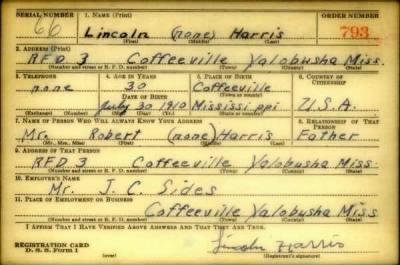 SERIAL NUMBER 1. NAME (Print) ORDER NUMBER
66 Lincoln (none) Harris 793
(First) (Middle) (Last)
2. ADDRESS (Print)
RFD 3 Coffeeville Yalobusha Miss.
(Number and street or R. F. D. number) (Town) (County) (State)
3. TELEPHONE 4. AGE IN YEARS 5. PLACE OF BIRTH 6. COUNTRY OF CITIZENSHIP
none 30 Coffeeville
DATE OF BIRTH
July 30 1910 Mississippi U.S.A.
7. NAME OF PERSON WHO WILL ALWAYS KNOW YOUR ADDRESS 8. RELATIONSHIP OF THAT PERSON
Mr. Robert (none) Harris Father
(Mr., Mrs., Miss) (First) (Middle) (Last)
9. ADDRESS OF THAT PERSON
RFD 3 Coffeeville Yalobusha Miss
(Number and street or R. F. D. number) (Town) (County) (State)
10. EMPLOYER'S NAME
Mr. J. C. Sides
11. PLACE OF EMPLOYMENT OR BUSINESS
Coffeeville Yalobusha Miss
(Number and street or R. F. D. number) (Town) (County) (State)
I AFFIRM THAT I HAVE VERIFIED ABOVE ANSWERS AND THAT THEY ARE TRUE.
REGISTRATION CARD
D. S. S. Form 1 (over) Lincoln Harris
(Registrant's signature)